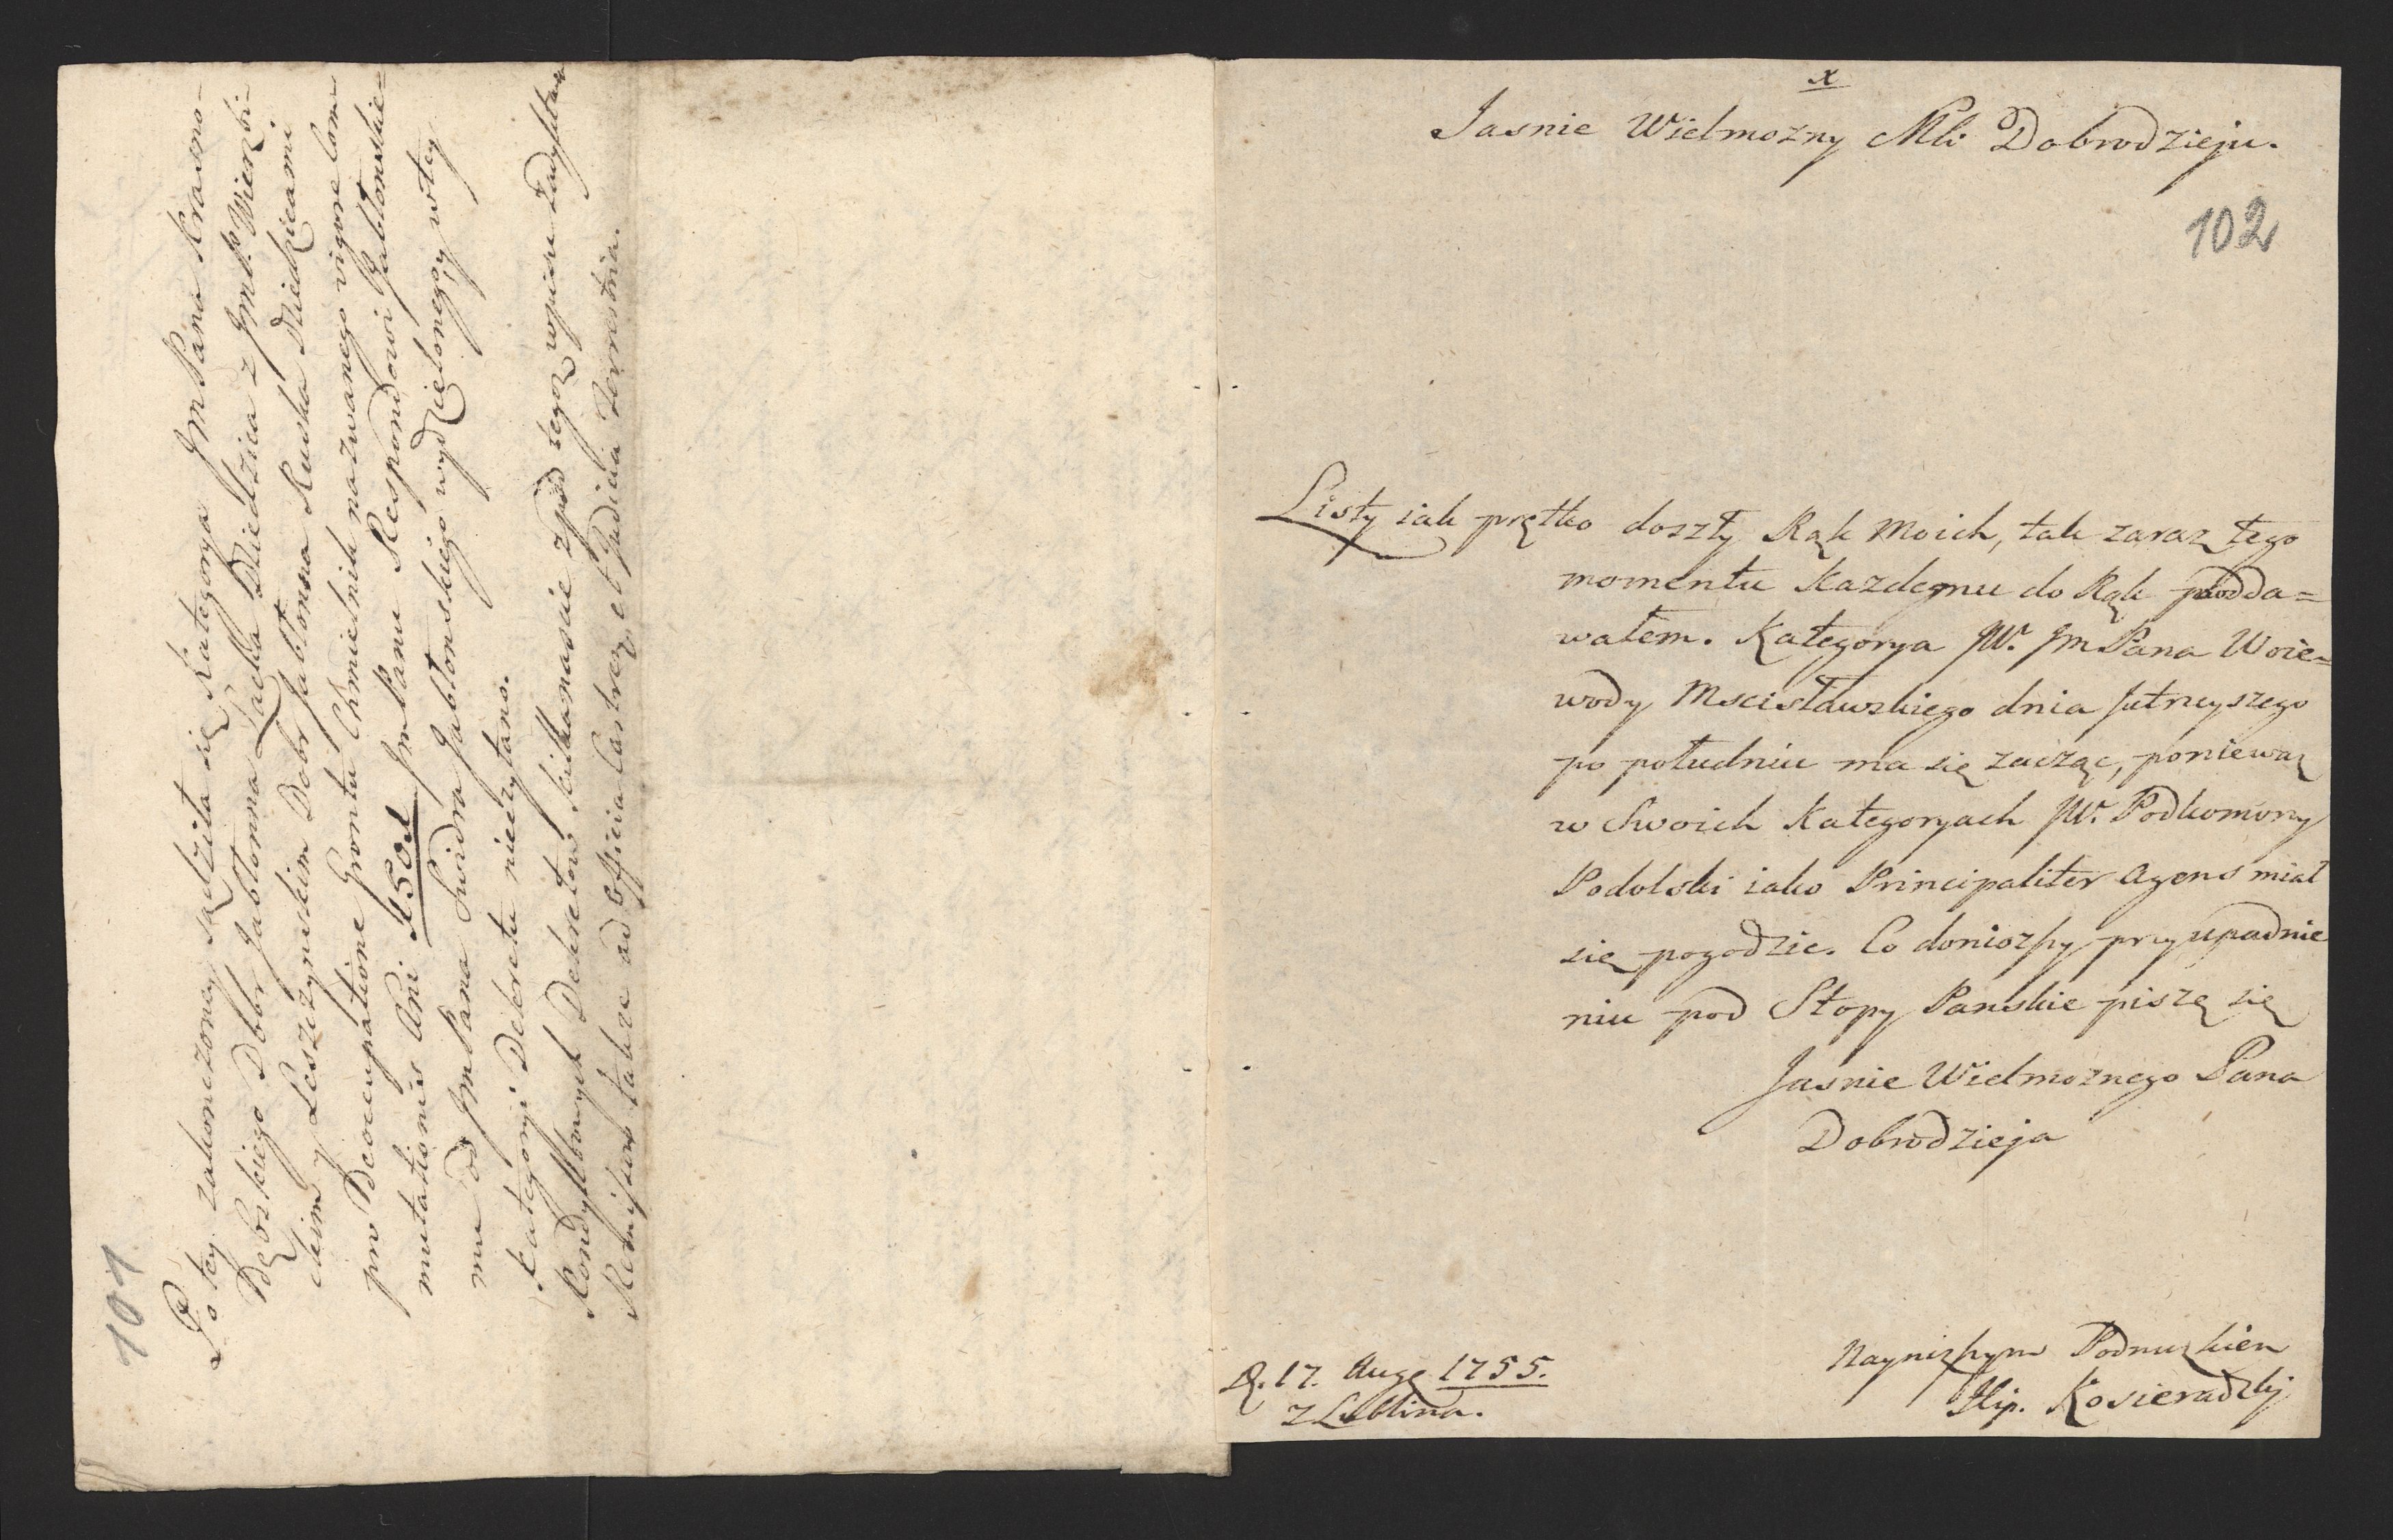 101
Po tey zakonczoney sądziła się Kategorya JmPana Krasno-
Dębskiego Dobr Jabłonna Lacka Dziedzica z Jmć Wierzbi-
ckim y Leszczynskim Dobr Jabłonna Ruska Dziedzicami
pro Deoccupatione Gruntu Chmielnik nazwanego vigore Com-
mutationis Ani 1501 JmPanu Respondowi Jabłonskie-
mu od JmPana Swidra Jabłonskiego wydzielonego, y w tey
Kategoryi Dekretu nieczytano.
Kondyktowych Dekretow kilkanascie z pod tegoz wpisu
Remissow takze ad Officia Castren. et Judicia Terrestria.
x
Jasnie Wielmozny Mći Dobrodzieju.
102
Listy iak prętko doszły Rąk Moich, tak zaraz tego
momentu Kazdemu do Rąk podda=
wałem. Kategorya JW. JmPana Woie=
wody Mscisławskiego dnia Jutrzyszego
po południu ma się zacząc, poniewaz
w Swoich Kategoryach JW. Podkomorzy
Podolski iako Principaliter Agens miał
się pogodzic. Co doniozszy przy upadnie
niu pod Stopy Panskie piszę się
Jasnie Wielmoznego Pana
Dobrodzieja
D. 17. Augę 1755.
z Lublina.
Nayniszszym Podnuzkiem
Hip. Kosieradzky